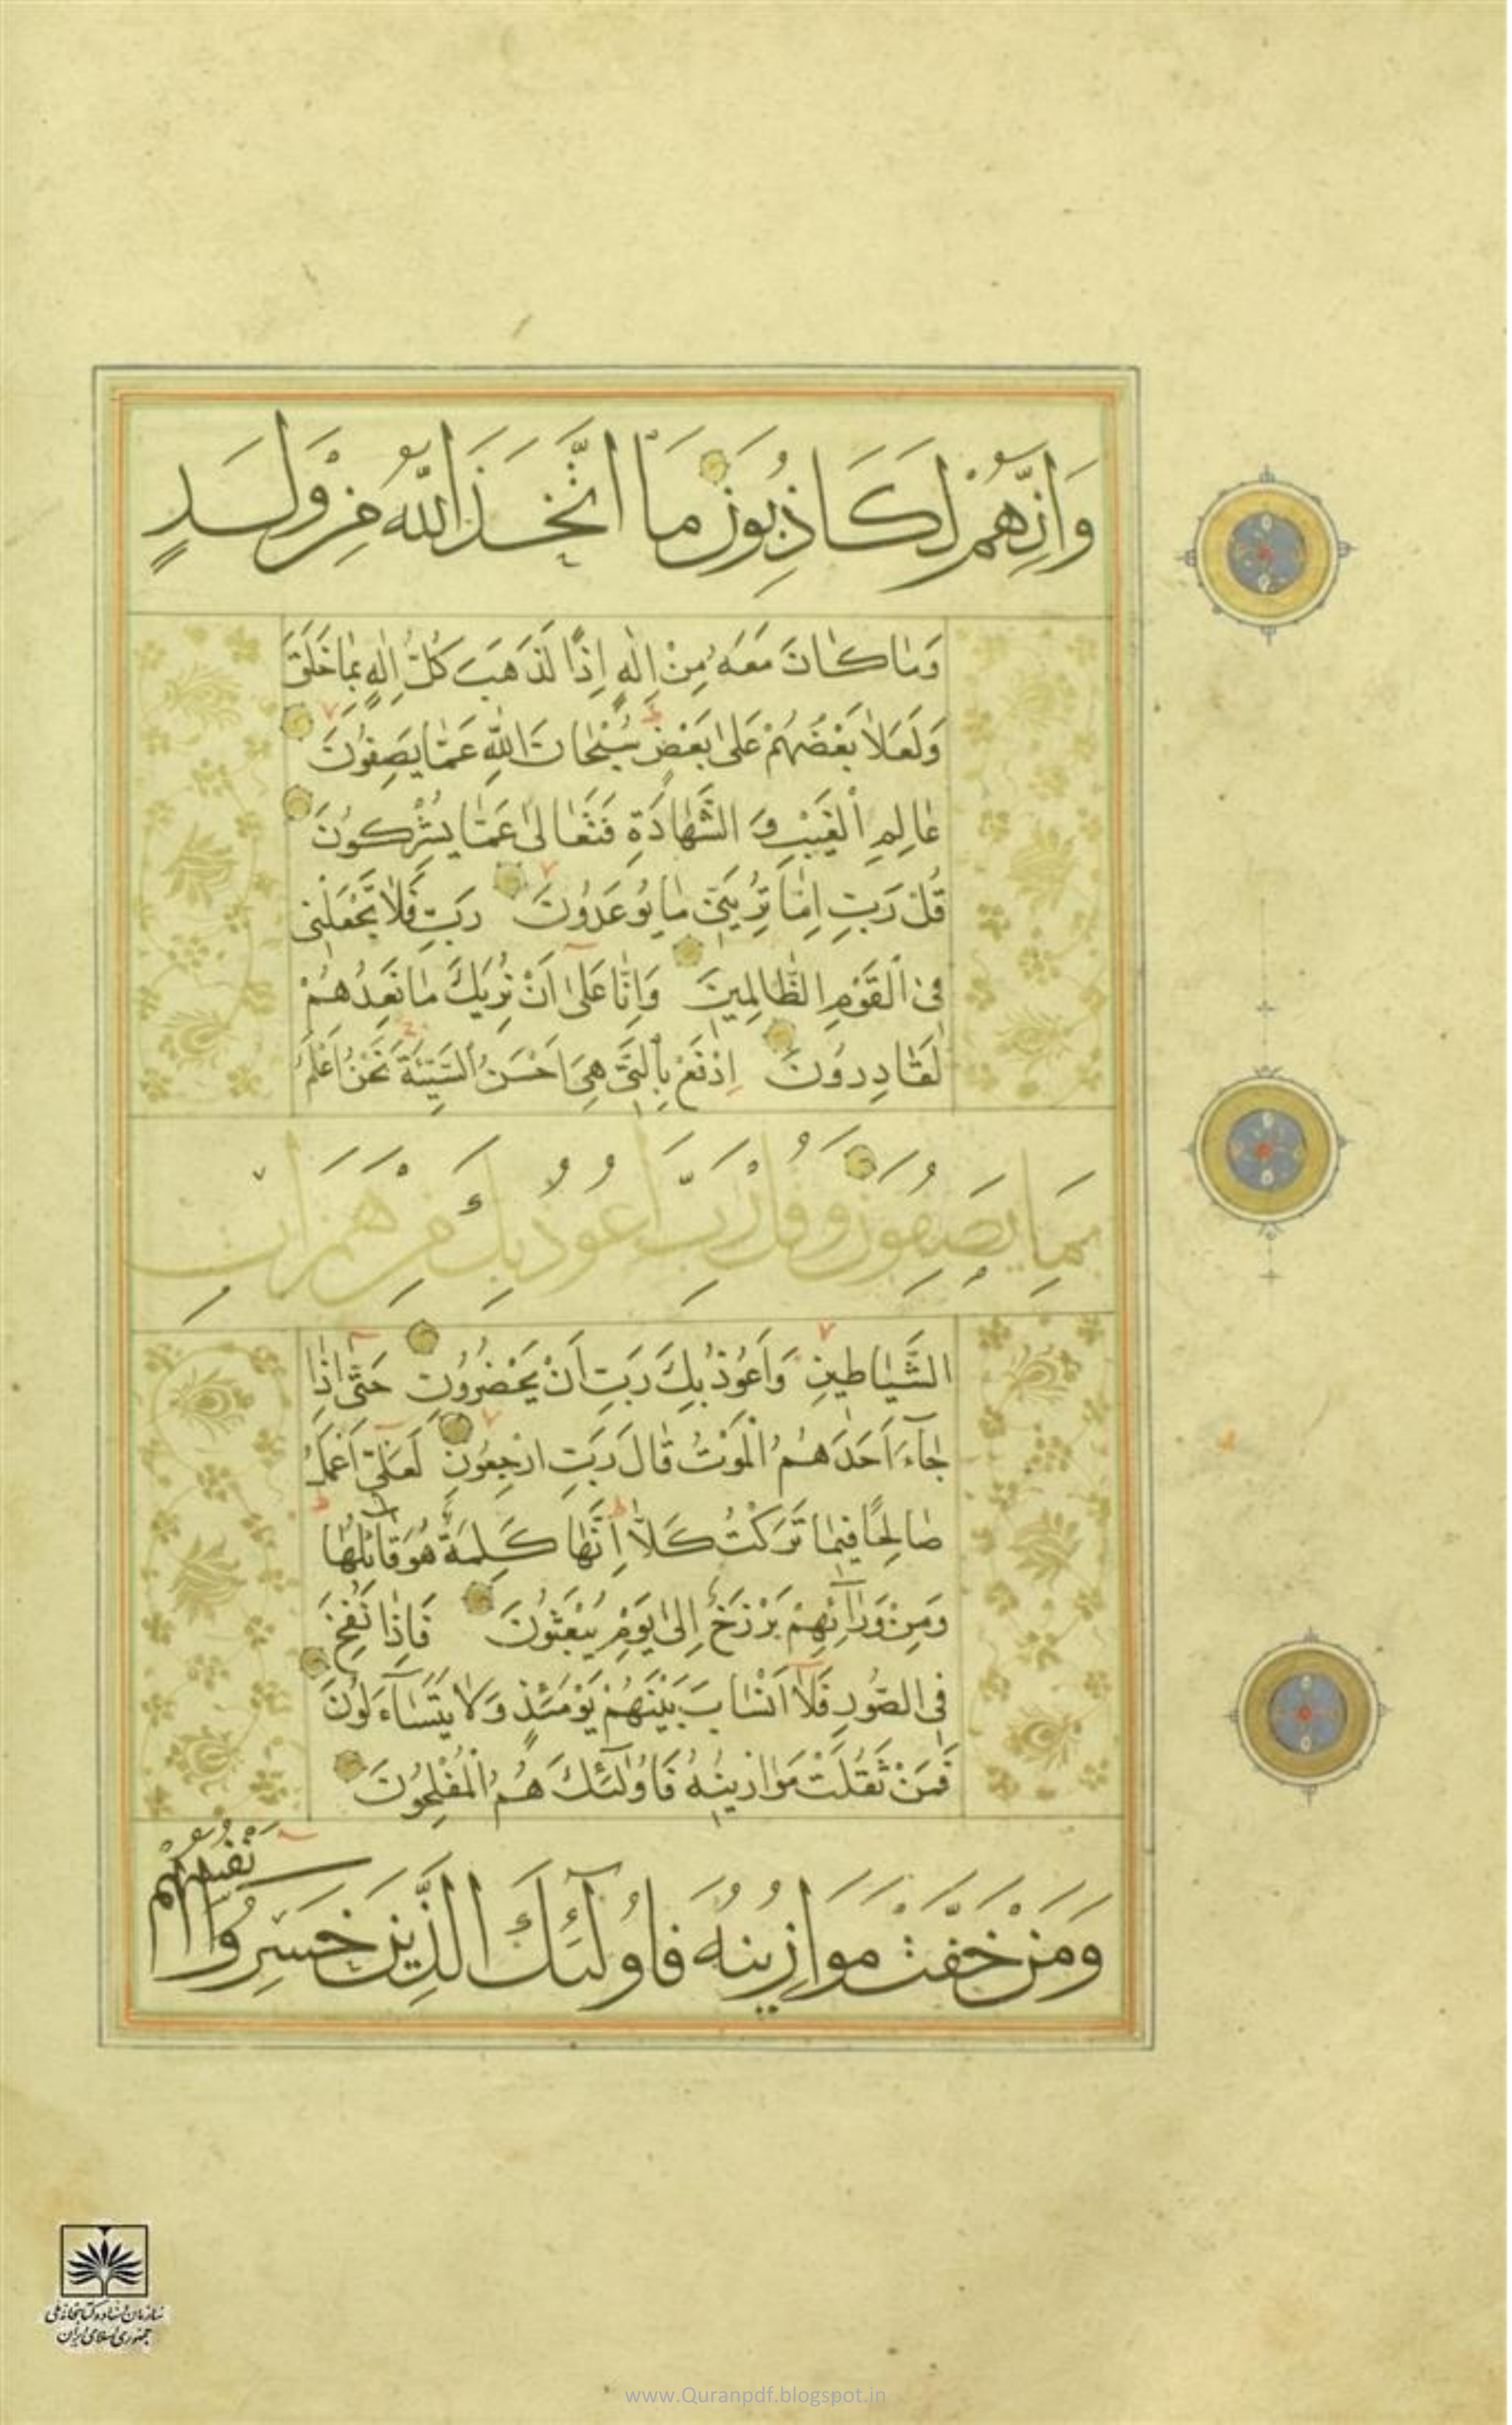 وَاِنَّهُمْ لَكَاذِبُونَ مَا اتَّخَذَ اللّٰهُ مِنْ وَلَدٍ
وَمٰا كٰانَ مَعَهُ مِنْ اِلٰهٍ اِذًا لَذَهَبَ كُلُّ اِلٰهٍ بِمٰا خَلَقَ
وَلَعَلاٰ بَعْضُهُمْ عَلىٰ بَعْضٍ سُبْحٰانَ اللّٰهِ عَمّٰا يَصِفُونَ
عٰالِمِ الْغَيْبِ وَ الشَّهٰادَةِ فَتَعٰالىٰ عَمّٰا يُشْرِكُونَ
قُلْ رَبِّ اِمّٰا تُرِيَنّى مٰا يُوعَدُونَ رَبِّ فَلاٰ تَجْعَلْنى
فِى الْقَوْمِ الظّٰالِمينَ وَاِنّٰا عَلىٰ اَنْ نُرِيَكَ مٰا نَعِدُهُمْ
لَقٰادِرُونَ اِدْفَعْ بِالَّتى هِىَ اَحْسَنُ السَّيِّئَةَ نَحْنُ اَعْلَمُ
بِمَا يَصِفُونَ وَقُلْ رَبِّ اَعُوذُ بِكَ مِنْ هَمَزَاتِ
الشَّيٰاطينِ وَاَعُوذُ بِكَ رَبِّ اَنْ يَحْضُرُونِ حَتّٰى اِذٰا
جٰٓاءَ اَحَدَهُمُ الْمَوْتُ قٰالَ رَبِّ ارْجِعُونِ لَعَلّى اَعْمَلُ
صٰالِحًا فيمٰا تَرَكْتُ كَلاّٰ اِنَّهٰا كَلِمَةٌ هُوَ قٰائِلُهٰا
وَمِنْ وَرٰٓائِهِمْ بَرْزَخٌ اِلىٰ يَوْمِ يُبْعَثُونَ فَاِذٰا نُفِخَ
فِى الصُّورِ فَلآٰ اَنْسٰابَ بَيْنَهُمْ يَوْمَئِذٍ وَلاٰ يَتَسٰٓاءَلُونَ
فَمَنْ ثَقُلَتْ مَوٰازينُهُ فَاُولٰٓئِكَ هُمُ الْمُفْلِحُونَ
وَمَنْ خَفَّتْ مَوَازِينُهُ فَاُولٰٓئِكَ الَّذِينَ خَسِرُوا اَنْفُسَهُمْ
سازمان اسناد و کتابخانه ملی
جمهوری اسلامی ایران
www.Quranpdf.blogspot.in